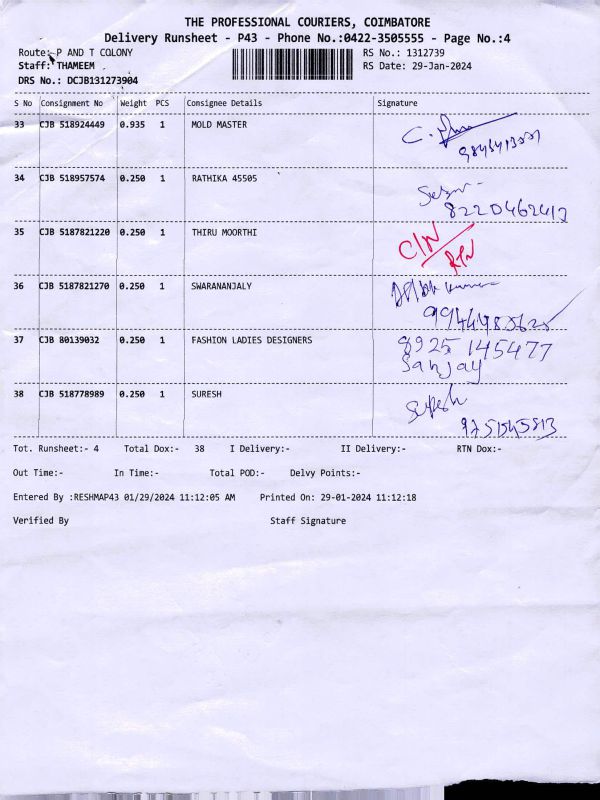 THE PROFESSIONAL COURIERS, COIMBATORE
Delivery Runsheet - P43 - Phone No.:0422-3505555 - Page No.:4
Route:- P AND T COLONY RS No.: 1312739
Staff: THAMEEM RS Date: 29-Jan-2024
DRS No.: DCJB131273904
S No Consignment No Weight PCS Consignee Details Signature
33 CJB 518924449 0.935 1 MOLD MASTER
34 CJB 518957574 0.250 1 RATHIKA 45505
8220462412
35 CJB 5187821220 0.250 1 THIRU MOORTHI
C/N
RTN
36 CJB 5187821270 0.250 1 SWARANANJALY
37 CJB 80139032 0.250 1 FASHION LADIES DESIGNERS
8925 145477
Sanjay
38 CJB 518778989 0.250 1 SURESH
Suresh
9751545813
Tot. Runsheet:- 4 Total Dox:- 38 I Delivery:- II Delivery:- RTN Dox:-
Out Time:- In Time:- Total POD:- Delvy Points:-
Entered By :RESHMAP43 01/29/2024 11:12:05 AM Printed On: 29-01-2024 11:12:18
Verified By Staff Signature